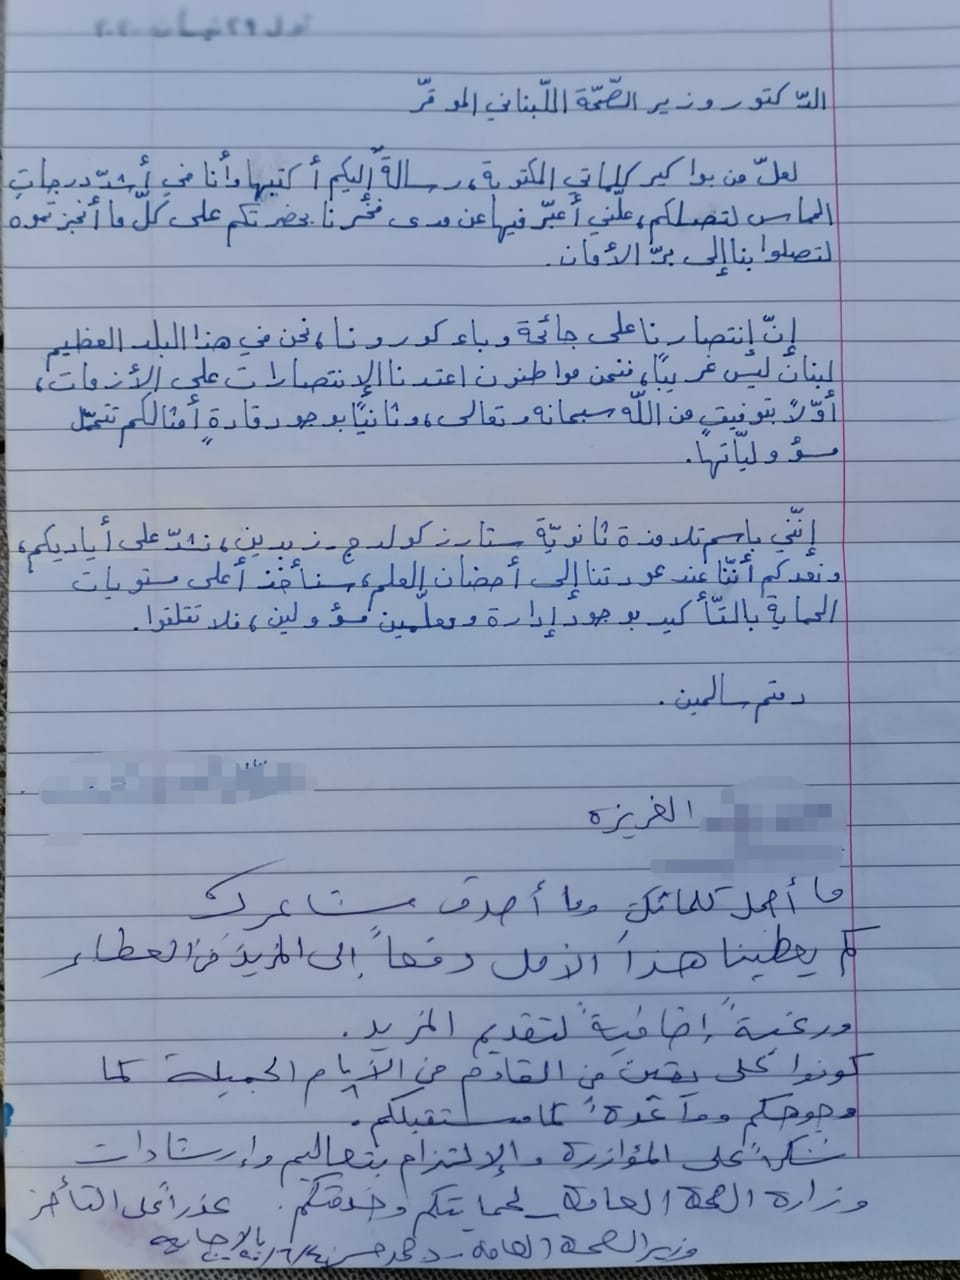 الدّكتور وزير الصّحّة اللّبناني الموقّر
لعلّ من بواكير كلماتي المكتوبة، رسالةٌ إليكم أكتبها وأنا في أشدّ درجاتِ
الحماس لتصلكم، علّني أعبّر فيها عن مدى فخرنا بحضرتكم على كلّ ما أنجزتموه
لتصلوا بنا إلى برّ الأمان.
إنّ إنتصارنا على جائحة وباء كورونا، نحن في هذا البلد العظيم
لبنان ليس غريبًا، فنحن مواطنون اعتدنا الإنتصارات على الأزمات،
أوّلًا بتوفيقٍ من اللّه سبحانه وتعالى، وثانيًا بوجود قادةٍ أمثالكم تتحمّل
مسؤوليّاتها.
إنّني باسم تلامذة ثانويّة ستارز كولدج - زبدين، نشدّ على أياديكم،
ونعدكم أنّنا عند عودتنا إلى أحضان العلم، سنأخذ أعلى مستويات
الحماية بالتّأكيد بوجود إدارة ومعلّمين مسؤولين، فلا تقلقوا.
دمتم سالمين.
العزيزة
ما أجمل كلماتك وما أصدق مشاعرك
كم يعطينا هذا الأمل دفعاً إلى المزيد من العطاء
ورغبة إضافية لتقديم المزيد.
كونوا على يقين من القادم من الأيام الجميلة كما
وجوهكم وواعدة كما مستقبلكم.
شكراً على المؤازرة والإلتزام بتعاليم وإرشادات
وزارة الصحة العامة - لحمايتكم وخدمتكم. عذراً على التأخر
بالإجابة
وزير الصحة العامة - د. حمد حسن